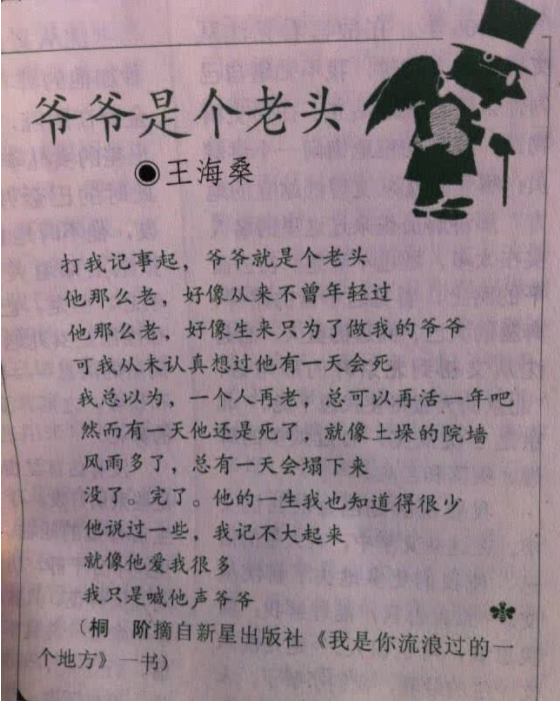 爷爷是个老头
◉王海桑
打我记事起，爷爷就是个老头
他那么老，好像从来不曾年轻过
他那么老，好像生来只为了做我的爷爷
可我从未认真想过他有一天会死
我总以为，一个人再老，总可以再活一年吧
然而有一天他还是死了，就像土垛的院墙
风雨多了，总有一天会塌下来
没了。完了。他的一生我也知道得很少
他说过一些，我记不大起来
就像他爱我很多
我只是喊他声爷爷
（桐　阶摘自新星出版社《我是你流浪过的一
个地方》一书）